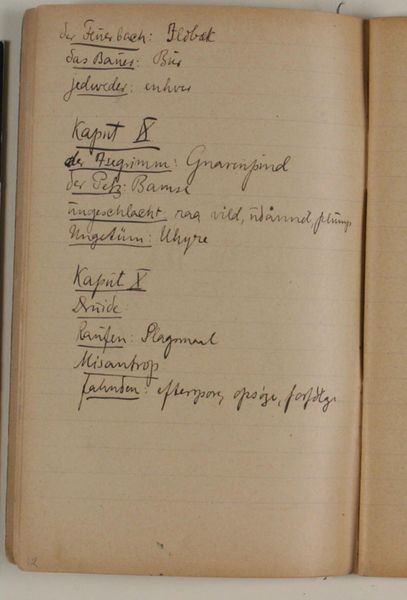 der Feuerbach: Ildbæk
das Bauer: Bur
jedweder: enhver
Kaput IX
der Isegrimm: Gnavenpind
der Petz: Bamse
ungeschlacht: raa vild, udannet, plump
Ungetüm: Uhyre
Kaput X
Druide:
Raufen:
Misantrop
fahnden: efterspore, opsøge, forfølge